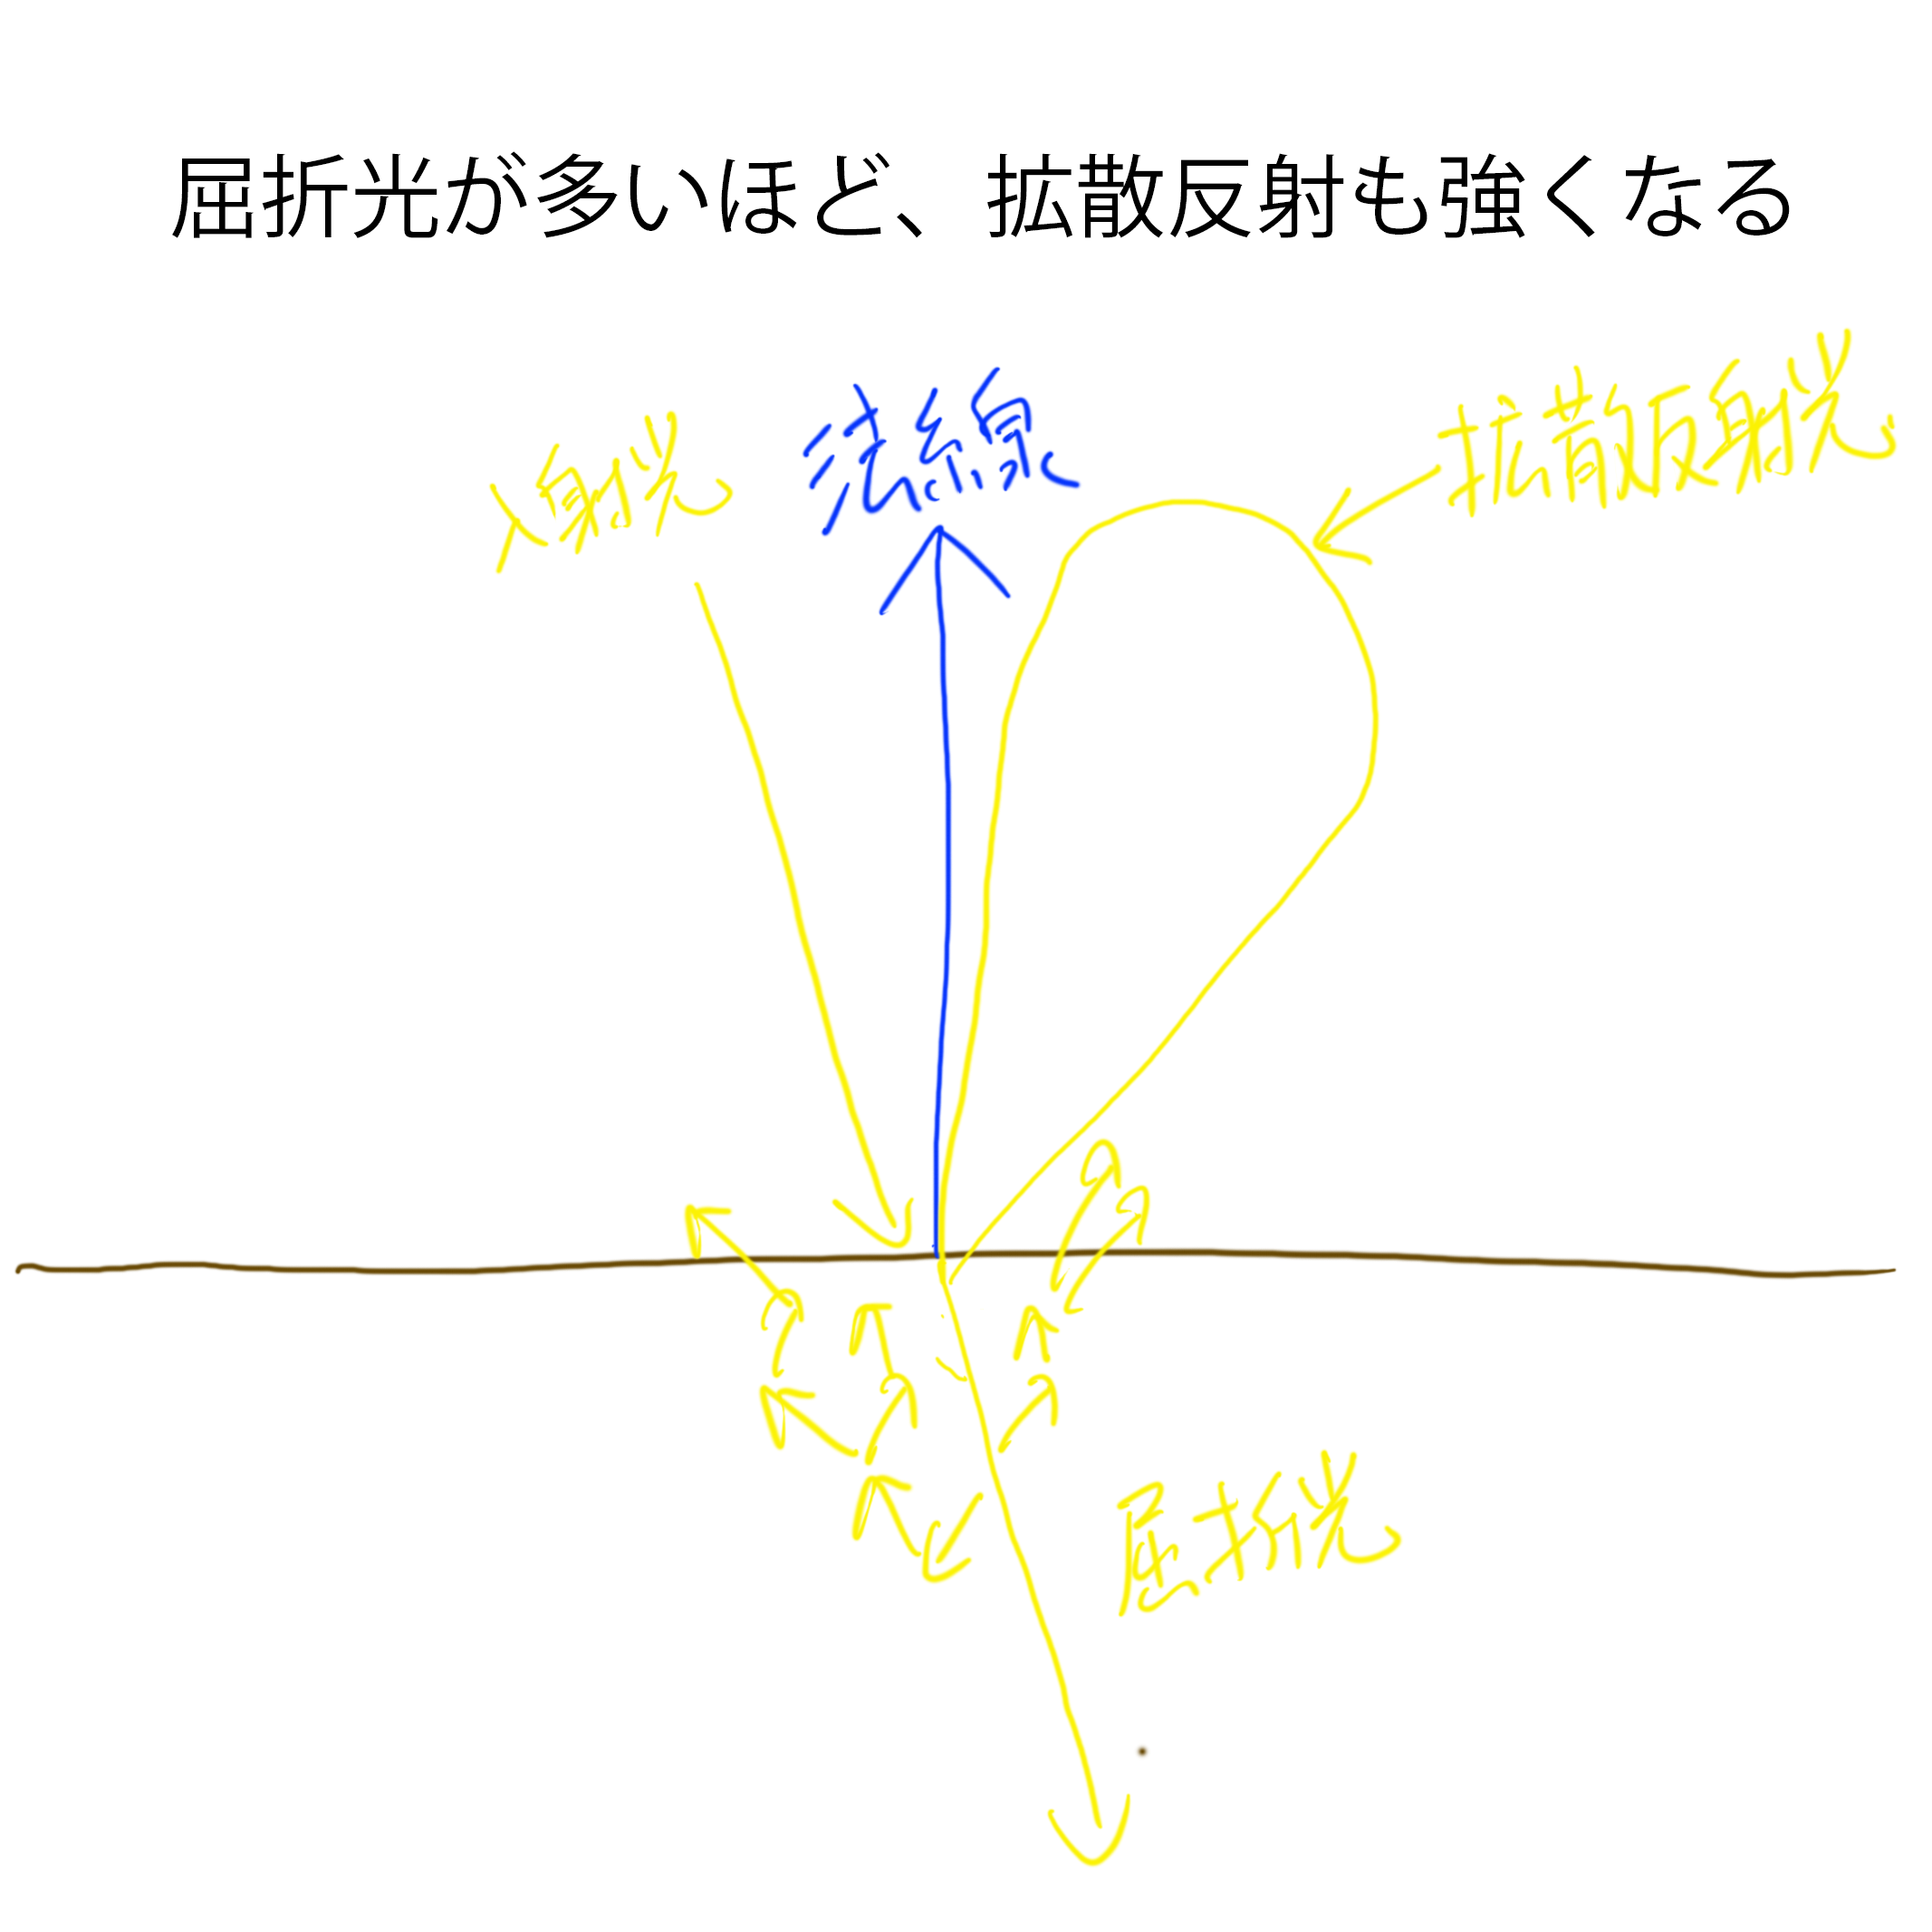 屈折光が多いほど、拡散反射も強くなる
入射光
法線
拡散反射光
屈折光